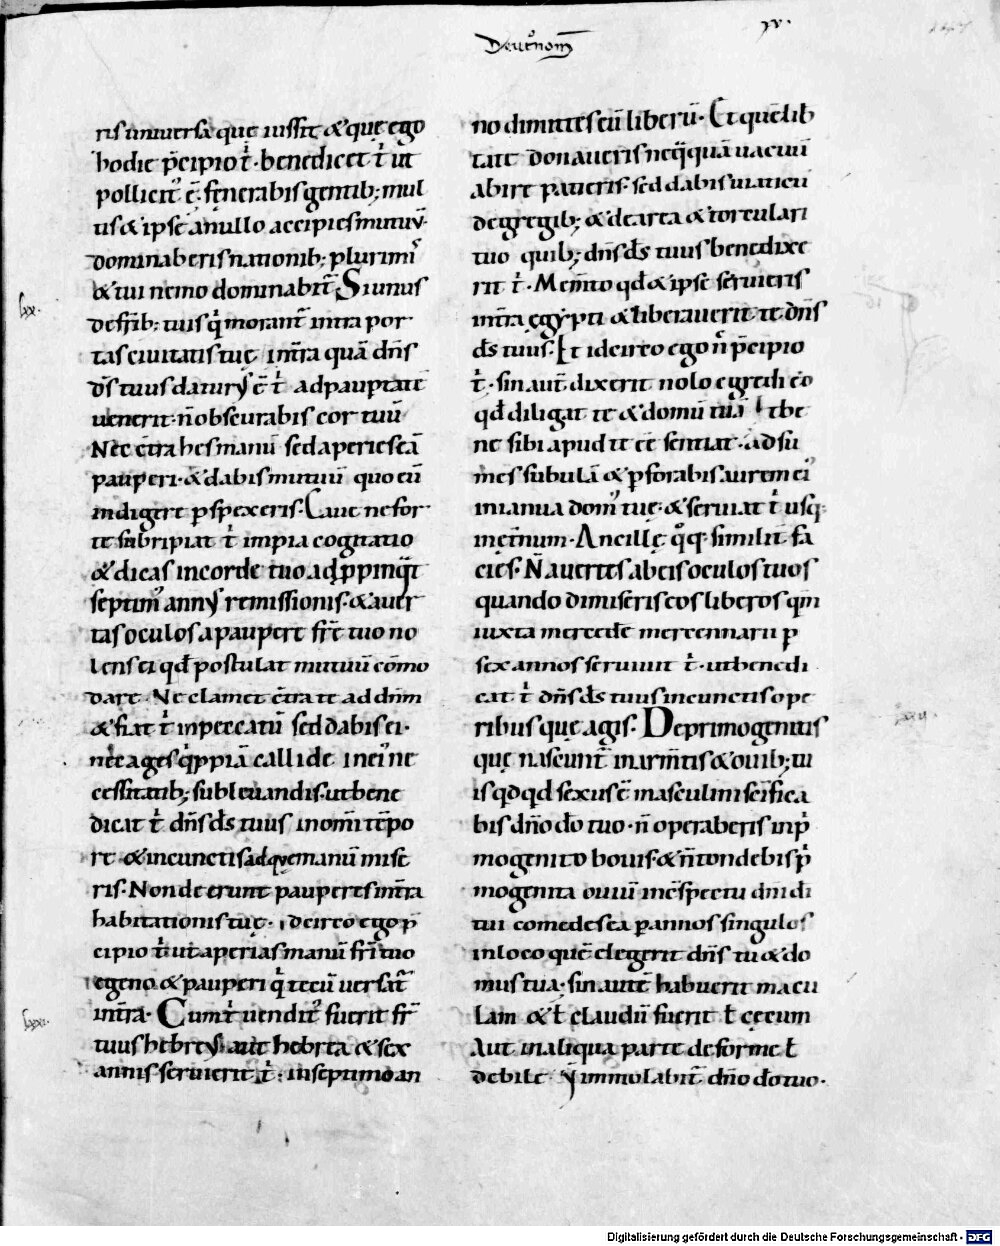 Deut͛onom̄
xv.
ris universa que iussit & que ego
hodie p̄cipio t̓. benedicet t̓ ut
pollicit᷒ ē. fenerabis gentib; mul
tis & ipse a nullo accipies mutuū.
dominaberis nationib; plurimis
& tui nemo dominabit̄. Si unus
de frīb; tuis q̓ morant̄ intra por
tas civitatis tuę intra quā dn̄s
ds̄ tuus daturus ē t̓ ad paup̄tatē
venerit. n̄ obscurabis cor tuū
Nec c̄trahes manū sed aperies eā
pauperi. & dabis mutuū quo eū
indigere pspexeris. Cave ne for
te subripiat t̓ impia cogitatio
& dicas in corde tuo adppinq̄t
septim᷒ annus remissionis. & aver
tas oculos a paupere fr̄e tuo no
lens ei qd̄ postulat mutuū cōmo
dare. Ne clamet c̄tra te ad dn̄m
& fiat t̓ in peccatū sed dabis ei.
nec ages q̓ppiā callide in ei᷒ ne
cessitatib; sublevandis. ut bene
dicat t̓ dn̄s ds̄ tuus in om̄i tēpo
re & in cunctis ad que manū mise
ris. Non deerunt pauperes in tr̄a
habitationis tuę. idcirco ego p̄
cipio t̓ ut aperias manū fr̄i tuo
egeno & pauperi q̓ tecū versat̄
in tr̄a. Cum t̓ vendit᷒ fuerit fr̄
tuus hebreus aut hebrea & sex
annis servierit t̓. in septimo an
no dimittes eū liberū. Et quē lib
tate donaveris neq̄quā vacuū
abire patieris. sed dabis viaticū
de gregib; & de area & torculari
tuo quib; dn̄s ds̄ tuus benedixe
rit t̓. Mem̄to qd̄ & ipse servieris
in tr̄a ęgypti & liberaverit te dn̄s
ds̄ tuus. Et idcirco ego n̄ p̄cipio
t̓. sin aut̄ dixerit nolo egredi eo
qd̄ diligat te & domū tuā & be
ne sibi apud te eē sentiat. adsu
mes subulā & pforabis aurem ei᷒
in ianua dom᷒ tuę. & serviat t̓ usq;
in ęt̄num. Ancille q̊q; similit̄ fa
cies. N̄ avertes ab eis oculos tuos
quando dimiseris eos liberos qm̄
iuxta mercedē mercennarii p
sex annos servivit t̓. ut benedi
cat t̓ dn̄s ds̄ tuus in cunctis ope
ribus que agis. De primogenitis
que nascunt̄ in arm̄tis & ovib; tu
is qdqd sexus ē masculini sc̄ifica
bis dn̄o do tuo. n̄ operaberis in p̓
mogenito bovis. & n̄ tondebis p̓
mogenita oviū in c̄spectu dn̄i di
tui comedes ea p annos singulos
in loco quē elegerit dn̄s tu & do
mus tua. sin aut̄ habuerit macu
lam & ł claudū fuerit ł cęcum
aut in aliqua parte deforme ł
debile. n̄ immolabit̄ dn̄o do tuo.
lxx.
lxxi.
Digitalisierung gefördert durch die Deutsche Forschungsgemeinschaft - DFG